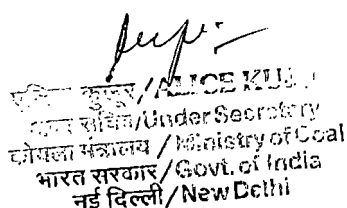 कुजूर/ALICE KUJ
सचिव/Under Secretary
कोयला मंत्रालय / Ministry of Coal
भारत सरकार/Govt. of India
नई दिल्ली/New Delhi